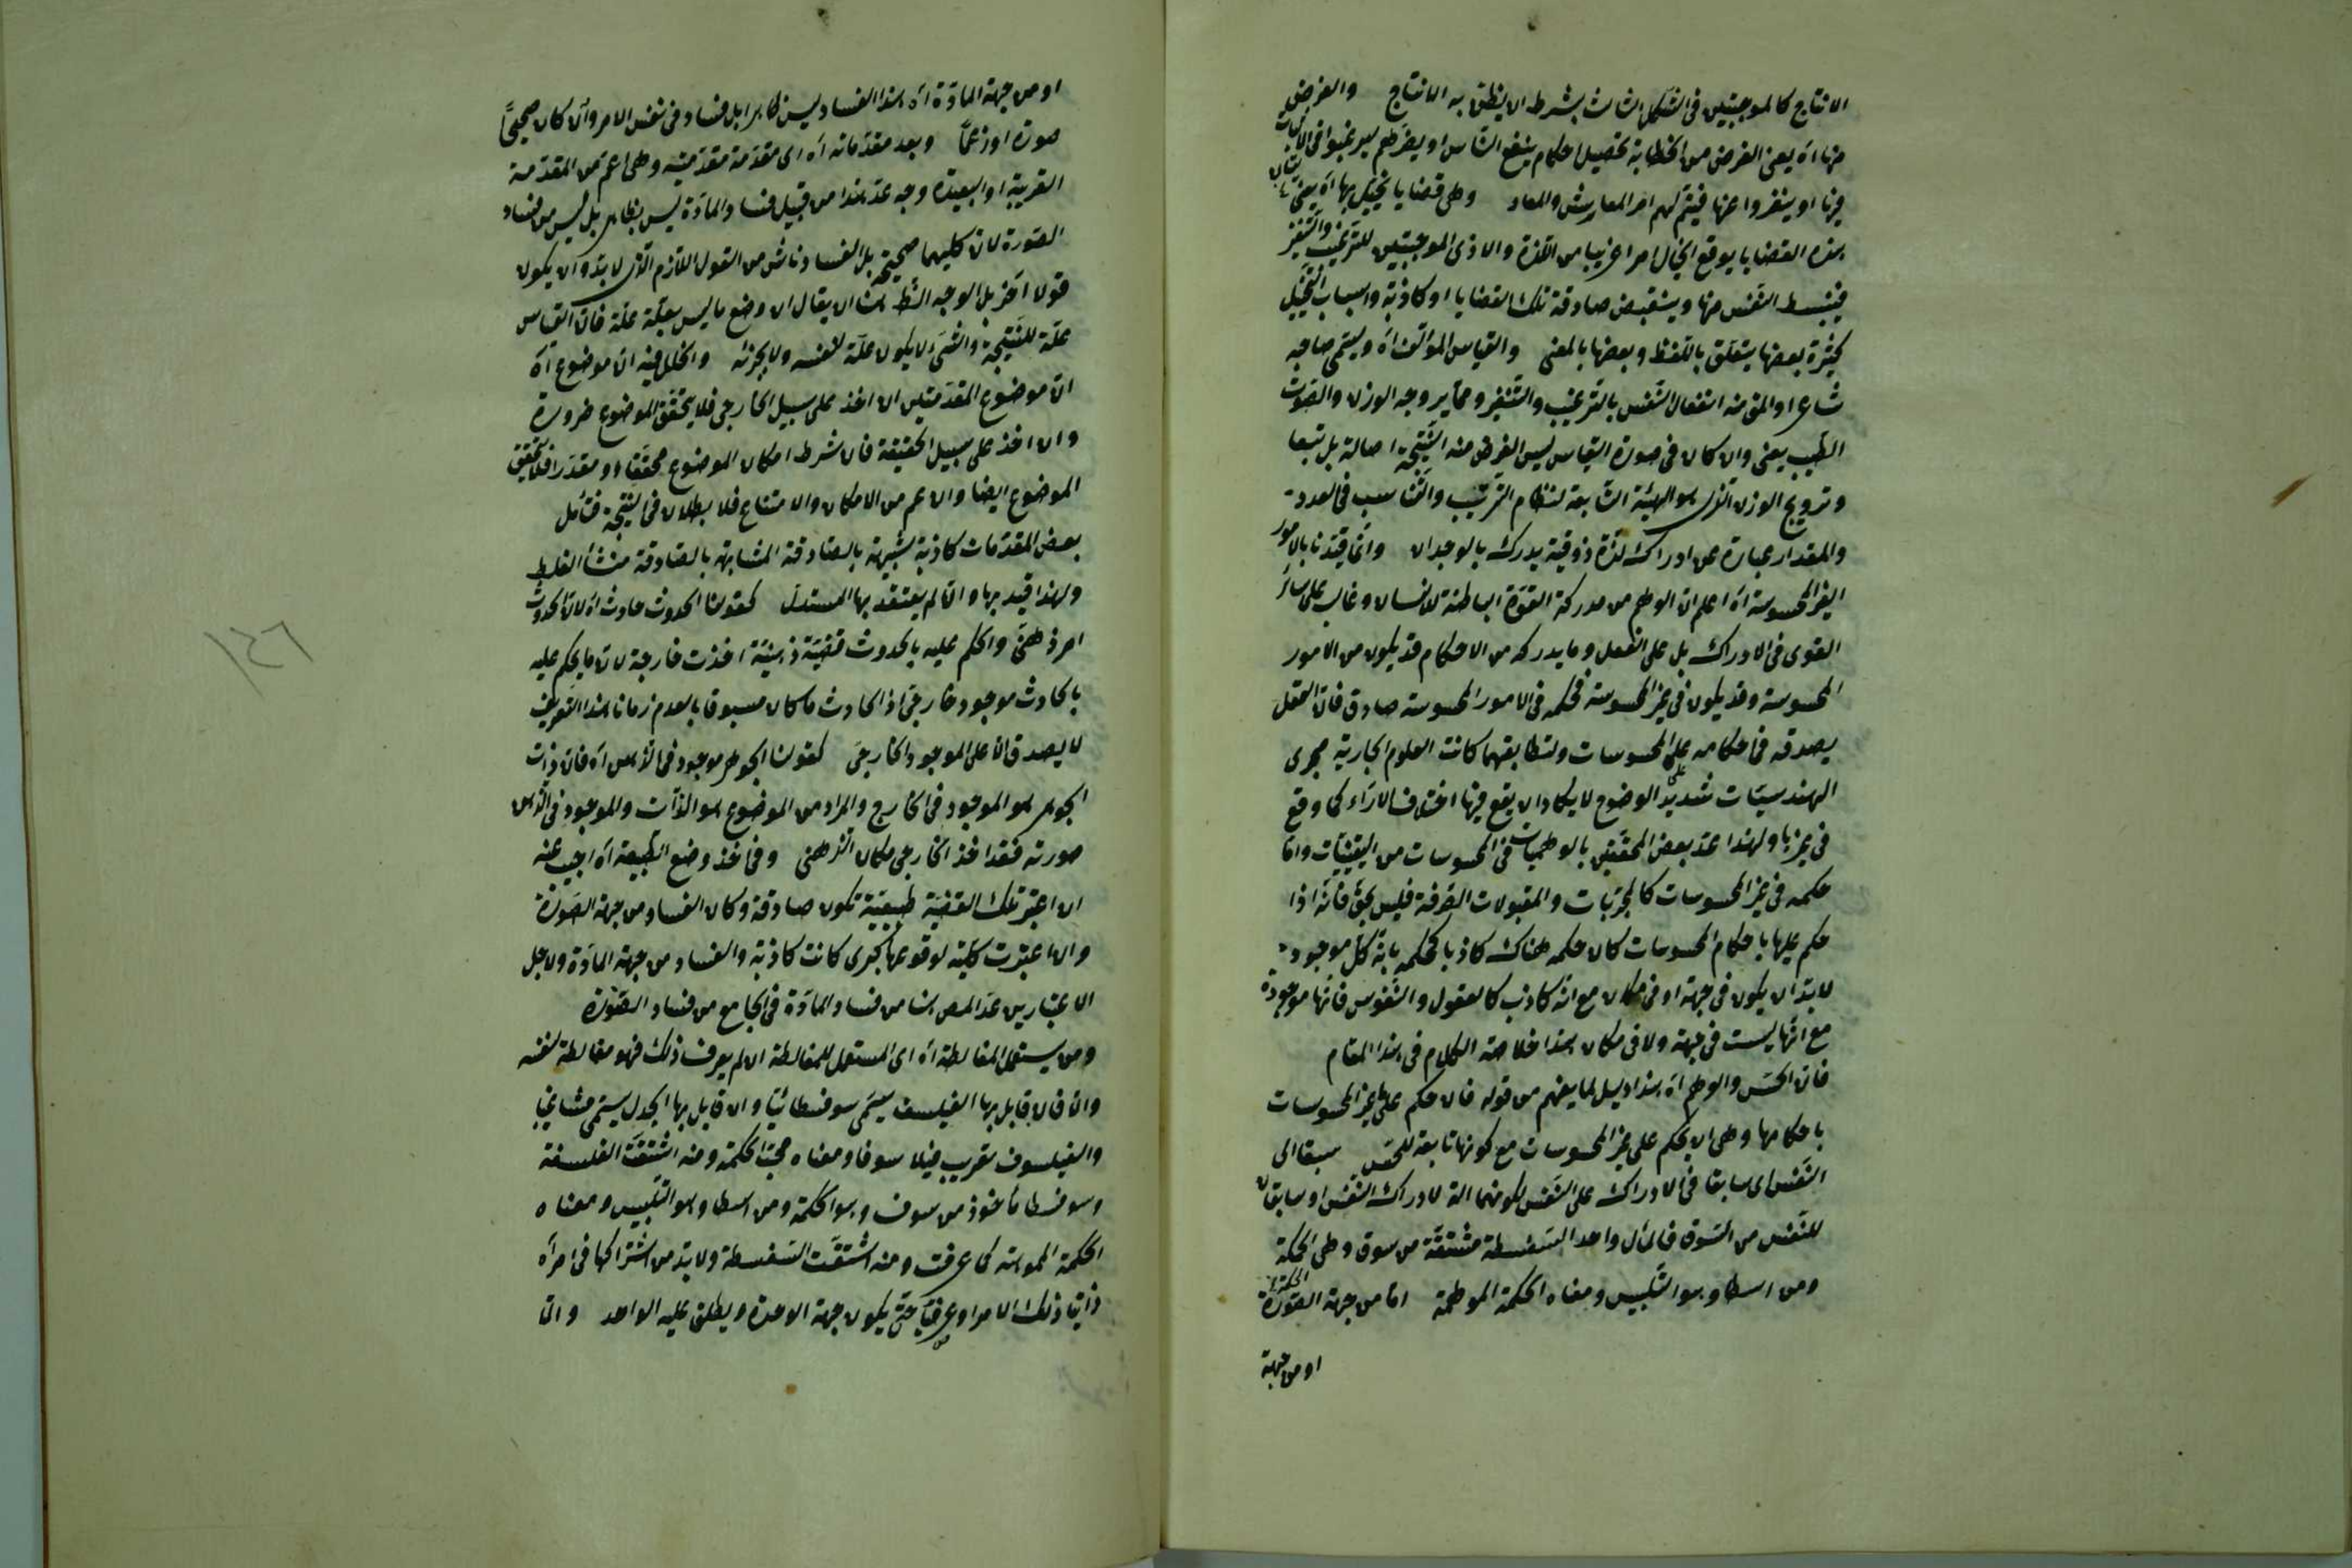 الانتاج كالموجبتين فى الشكل الثالث بشرط ان يظن به الانتاج والغرض
منها اه يعنى الغرض من الخطابة تحصيل احكام ينفع الناس او يضرهم ليرغبوا فى الاتيان
فيها او ينفروا عنها فيتم لهم امر المعايش والمعاد وهى قضايا يتخيل بها اه يعنى
بهذه القضايا يوقع الخيال امرا غريبا من اللذة والاذى الموجبتين للترغيب والتنفير
فينبسط النفس منها وينقبض صادقة تلك القضايا او كاذبة واسباب التخييل
كثيرة بعضها يتعلق باللفظ وبعضها بالمعنى والقياس المؤلف اه ويسمى صاحبه
شاعرا والمق منه انفعال النفس بالترغيب والتنفير ومما ير وجه الوزن والصوت
الطيب يعنى وان كان فى صورة القياس ليس الغرض منه النتيجة اصالة بل تبعا
وترويج الوزن الذى هو الهيئة التابعة لنظام الترتيب والتناسب فى العدد
والمقدار عبارة عن ادراك لذة ذوقية يدرك بالوجدان وانما قيدنا بالامور
الغير المحسوسة اه اعلم ان الوهم من مدركة القوة الباطنة للانسان وغالب على سائر
القوى فى الادراك بل على العقل وما يدركه من الاحكام قد يكون من الامور
المحسوسة وقد يكون فى غير المحسوسة فحكمه فى الامور المحسوسة صادق فان العقل
يصدقه فى احكامه على المحسوسات ولتطابقهما كانت العلوم الجارية مجرى
الهندسيات شديد الوضوح لا يكاد ان يقع فيها اختلاف الاراء كما وقع
فى غيرها ولهذا عد بعض المحققين بالوهميات فى المحسوسات من اليقينيات واما
حكمه فى غير المحسوسات كالمجربات والمقبولات الصرفة فليس بحق فانه اذا
حكم عليها باحكام المحسوسات كان حكمه هناك كاذبا كحكمه بانه كل موجود
لابد ان يكون فى جهة او فى مكان مع انه كاذب كالعقول والنفوس فانها موجودة
مع انها ليست فى جهة ولا فى مكان هذا خلاصة الكلام فى هذا المقام
فان الحس والوهم اه هذا دليل لما يفهم من قوله فان حكم على غير المحسوسات
باحكامها وهى ان يحكم على غير المحسوسات مع كونها تابعة للحس سبقا الى
النفس اى سابقا فى الادراك على النفس لكونهما الة لادراك النفس او سابقان
للنفس من السوق فالمأل واحد السفسطة مشتقة من سوق وهى الحكمة
ومن اسطا وهو التلبيس ومعناه الحكمة الموهمة اما من جهة الصورة
او من جهة
او من جهة المادة اه هذا الفساد ليس ظاهرا بل فساد فى نفس الامر والا كان صحيحاً
صورة او زعماً وبعد مقدماته اه اى مقدمة مقدمتيه وهى اعم من المقدمة
القريبة او البعيدة وجه عد هذا من قبيل فساد المادة ليس بظاهر بل ليس من فساد
الصورة لان كليهما صحيحة بل الفساد ناش من القول اللازم الذى لابد وان يكون
قولا آخر بل الوجه الظ هنا ان يقال ان وضع ما ليس بعلة علة فان القياس
علة للنتيجة والشئ لا يكون علة لنفسه ولا لجزئه والخلل فيه ان موضوع اه
ان موضوع المقدمتين ان اخذ على سبيل الخارجى فلا يتحقق الموضوع ضرورة
وان اخذ على سبيل الحقيقة فان شرط امكان الموضوع محققا او مقدرا فلا يتحقق
الموضوع ايضا وان عم من الامكان والامتناع فلا بطلان فى النتيجة فتأمل
بعض المقدمات كاذبة شبيهة بالصادقة المشابهة بالصادقة منشأ الغلط
ولهذا قيد بها وان لم يعتقد بها المستدل كقولنا الحدوث حادث اه لان الحدوث
امر ذهنى والحكم عليه بالحدوث قضية ذهنية اخذت خارجة لان ما يحكم عليه
بالحادث موجود خارجى اذ الحادث ما كان مسبوقا بالعدم زمانا هذا التعريف
لا يصدق الا على الموجود الخارجى كقولنا الجوهر موجود فى الذهن اه فان ذات
الجوهر هو الموجود فى الخارج والمراد من الموضوع هو الذات والموجود فى الذهن
صورته فقد اخذ الخارجى مكان الذهنى وفى اخذ وضع الطبيعة اه اجيب عنه
ان اعتبر تلك القضية طبيعية تكون صادقة وكان الفساد من جهة الصورة
وان اعتبرت كلية لوقوعها كبرى كانت كاذبة والفساد من جهة المادة ولاجل
الاعتبارين عد المص هنا من فساد المادة فى الجامع من فساد الصورة
ومن يستعمل المغالطة اه اى المستعمل للمغالطة ان لم يعرف ذلك فهو مغالطة لنفسه
والا فان قابل بها الفيلسوف يسمى سوفسطائيا وان قابل بها الجدلى يسمى مشاغبا
والفيلسوف تعريب فيلا سوفا ومعناه محب الحكمة ومنه اشتقت الفلسفة
وسوفسطا مأخوذ من سوف وهو الحكمة ومن اسطا وهو التلبيس ومعناه
الحكمة المموهة كما عرفت ومنه اشتقت السفسطة ولابد من اشتراكها فى امر اه
ذاتيا ذلك الامر او عرضيا حتى يكون جهة الوحدة ويطلق عليه الواحد والا
١٤٦